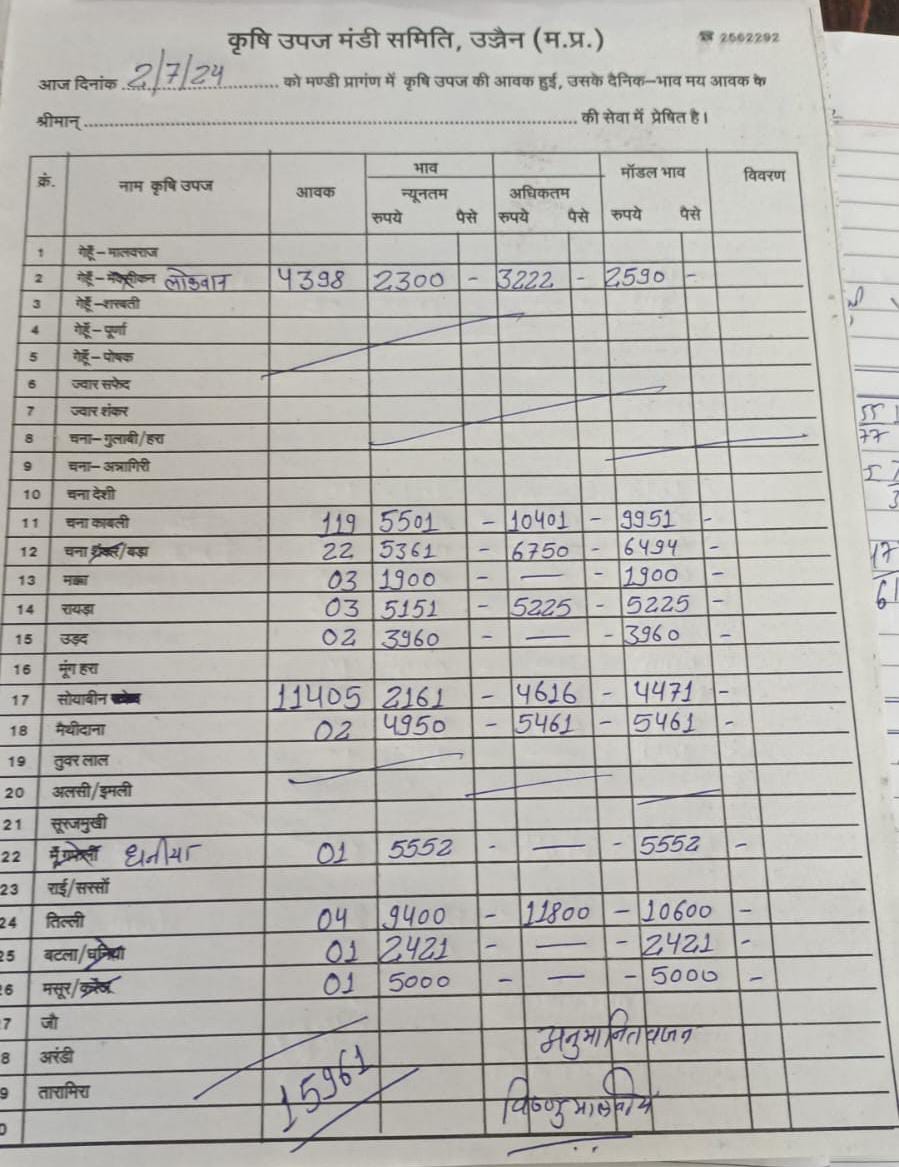 कृषि उपज मंडी समिति, उज्जैन (म.प्र.) ☎ 2562292
आज दिनांक 2/7/24 को मण्डी प्रागंण में कृषि उपज की आवक हुई, उसके दैनिक-भाव मय आवक के
श्रीमान् की सेवा में प्रेषित है।
क्रं. नाम कृषि उपज आवक भाव मॉडल भाव विवरण
न्यूनतम अधिकतम
रुपये पैसे रुपये पैसे रुपये पैसे
1 गेहूँ-मालवराज
2 गेहूँ- लोकवान 4398 2300 - 3222 - 2590 -
3 गेहूँ-शरबती
4 गेहूँ-पूर्णा
5 गेहूँ-पोषक
6 ज्वार सफेद
7 ज्वार शंकर
8 चना-गुलाबी/हरा
9 चना-अन्नागिरी
10 चना देशी
11 चना काबली 119 5501 - 10401 - 9951 -
12 चना शंकर/बड़ा 22 5361 - 6750 - 6494 -
13 मक्का 03 1900 - — - 1900 -
14 रायड़ा 03 5151 - 5225 - 5225 -
15 उड़द 02 3960 - — - 3960 -
16 मूंग हरा
17 सोयाबीन 11405 2161 - 4616 - 4471 -
18 मैथीदाना 02 4950 - 5461 - 5461 -
19 तुवर लाल
20 अलसी/इमली
21 सूरजमुखी
22 मूँगफली धनीया 01 5552 - — - 5552 -
23 राई/सरसों
24 तिल्ली 04 9400 - 11800 - 10600 -
25 बटला/धनिया 01 2421 - — - 2421 -
26 मसूर/ 01 5000 - — - 5000 -
7 जौ
8 अरंडी
9 तारामिरा
0
15961
अनुमानित वजन
विष्णु मालवीय